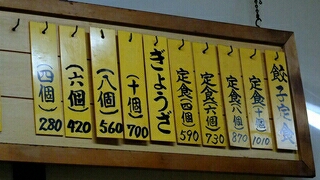 餃子定食
定食(十個) 1010
定食(八個) 870
定食(六個) 730
定食(四個) 590
ぎょうざ
(十個) 700
(八個) 560
(六個) 420
(四個) 280